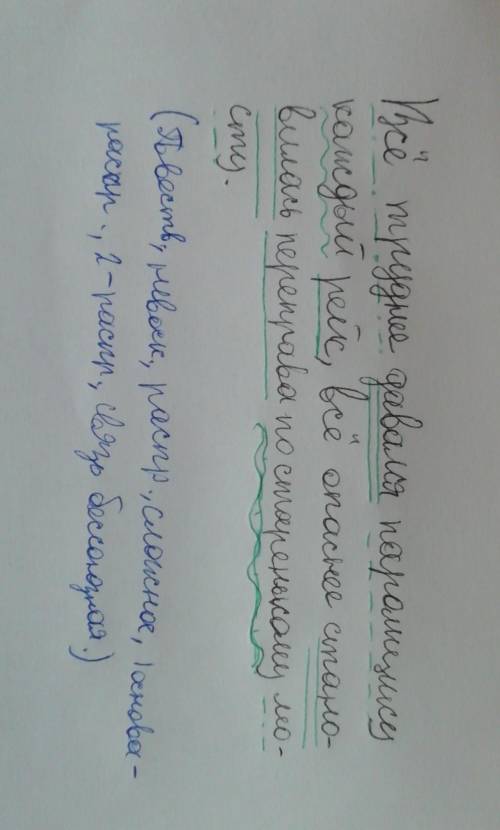 Всё труднее давался парашюту
каждый рейс, всё опаснее стано-
вилась переправа по старенькому мо-
сту.
(Повеств, невоск, распр, сложное, 1 основа-
распр., 2-распр, связь бессоюзная.)